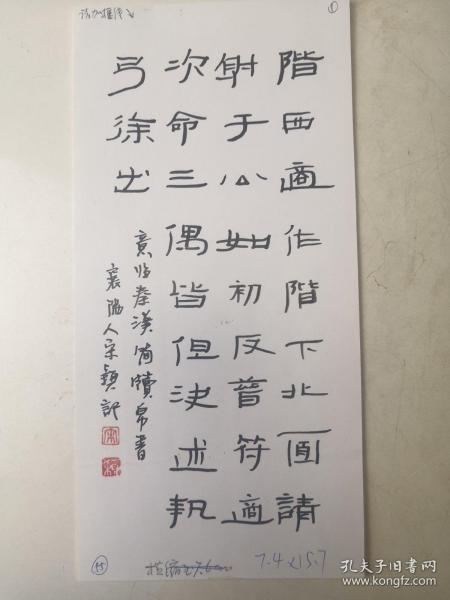 ①
階西適作階下北面請
射于公如初反普符適
次命三偶皆但決述執
弓徐出
意临秦漢简牘帛書
襄陽人宋穎記
7.4×15.7
孔夫子旧书网
www.kongfz.com